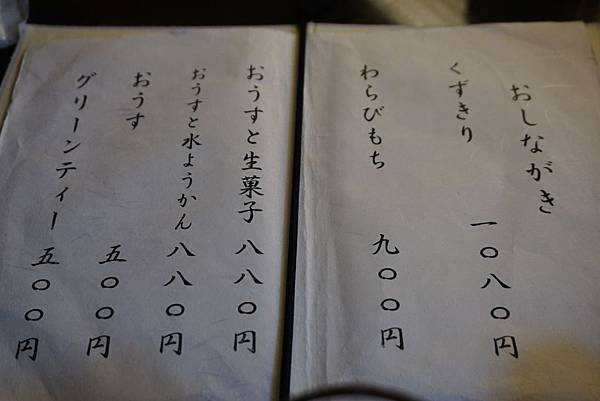 おしながき
くずきり 一〇八〇円
わらびもち 九〇〇円
おうすと生菓子 八八〇円
おうすと水ようかん 八八〇円
おうす 五〇〇円
グリーンティー 五〇〇円